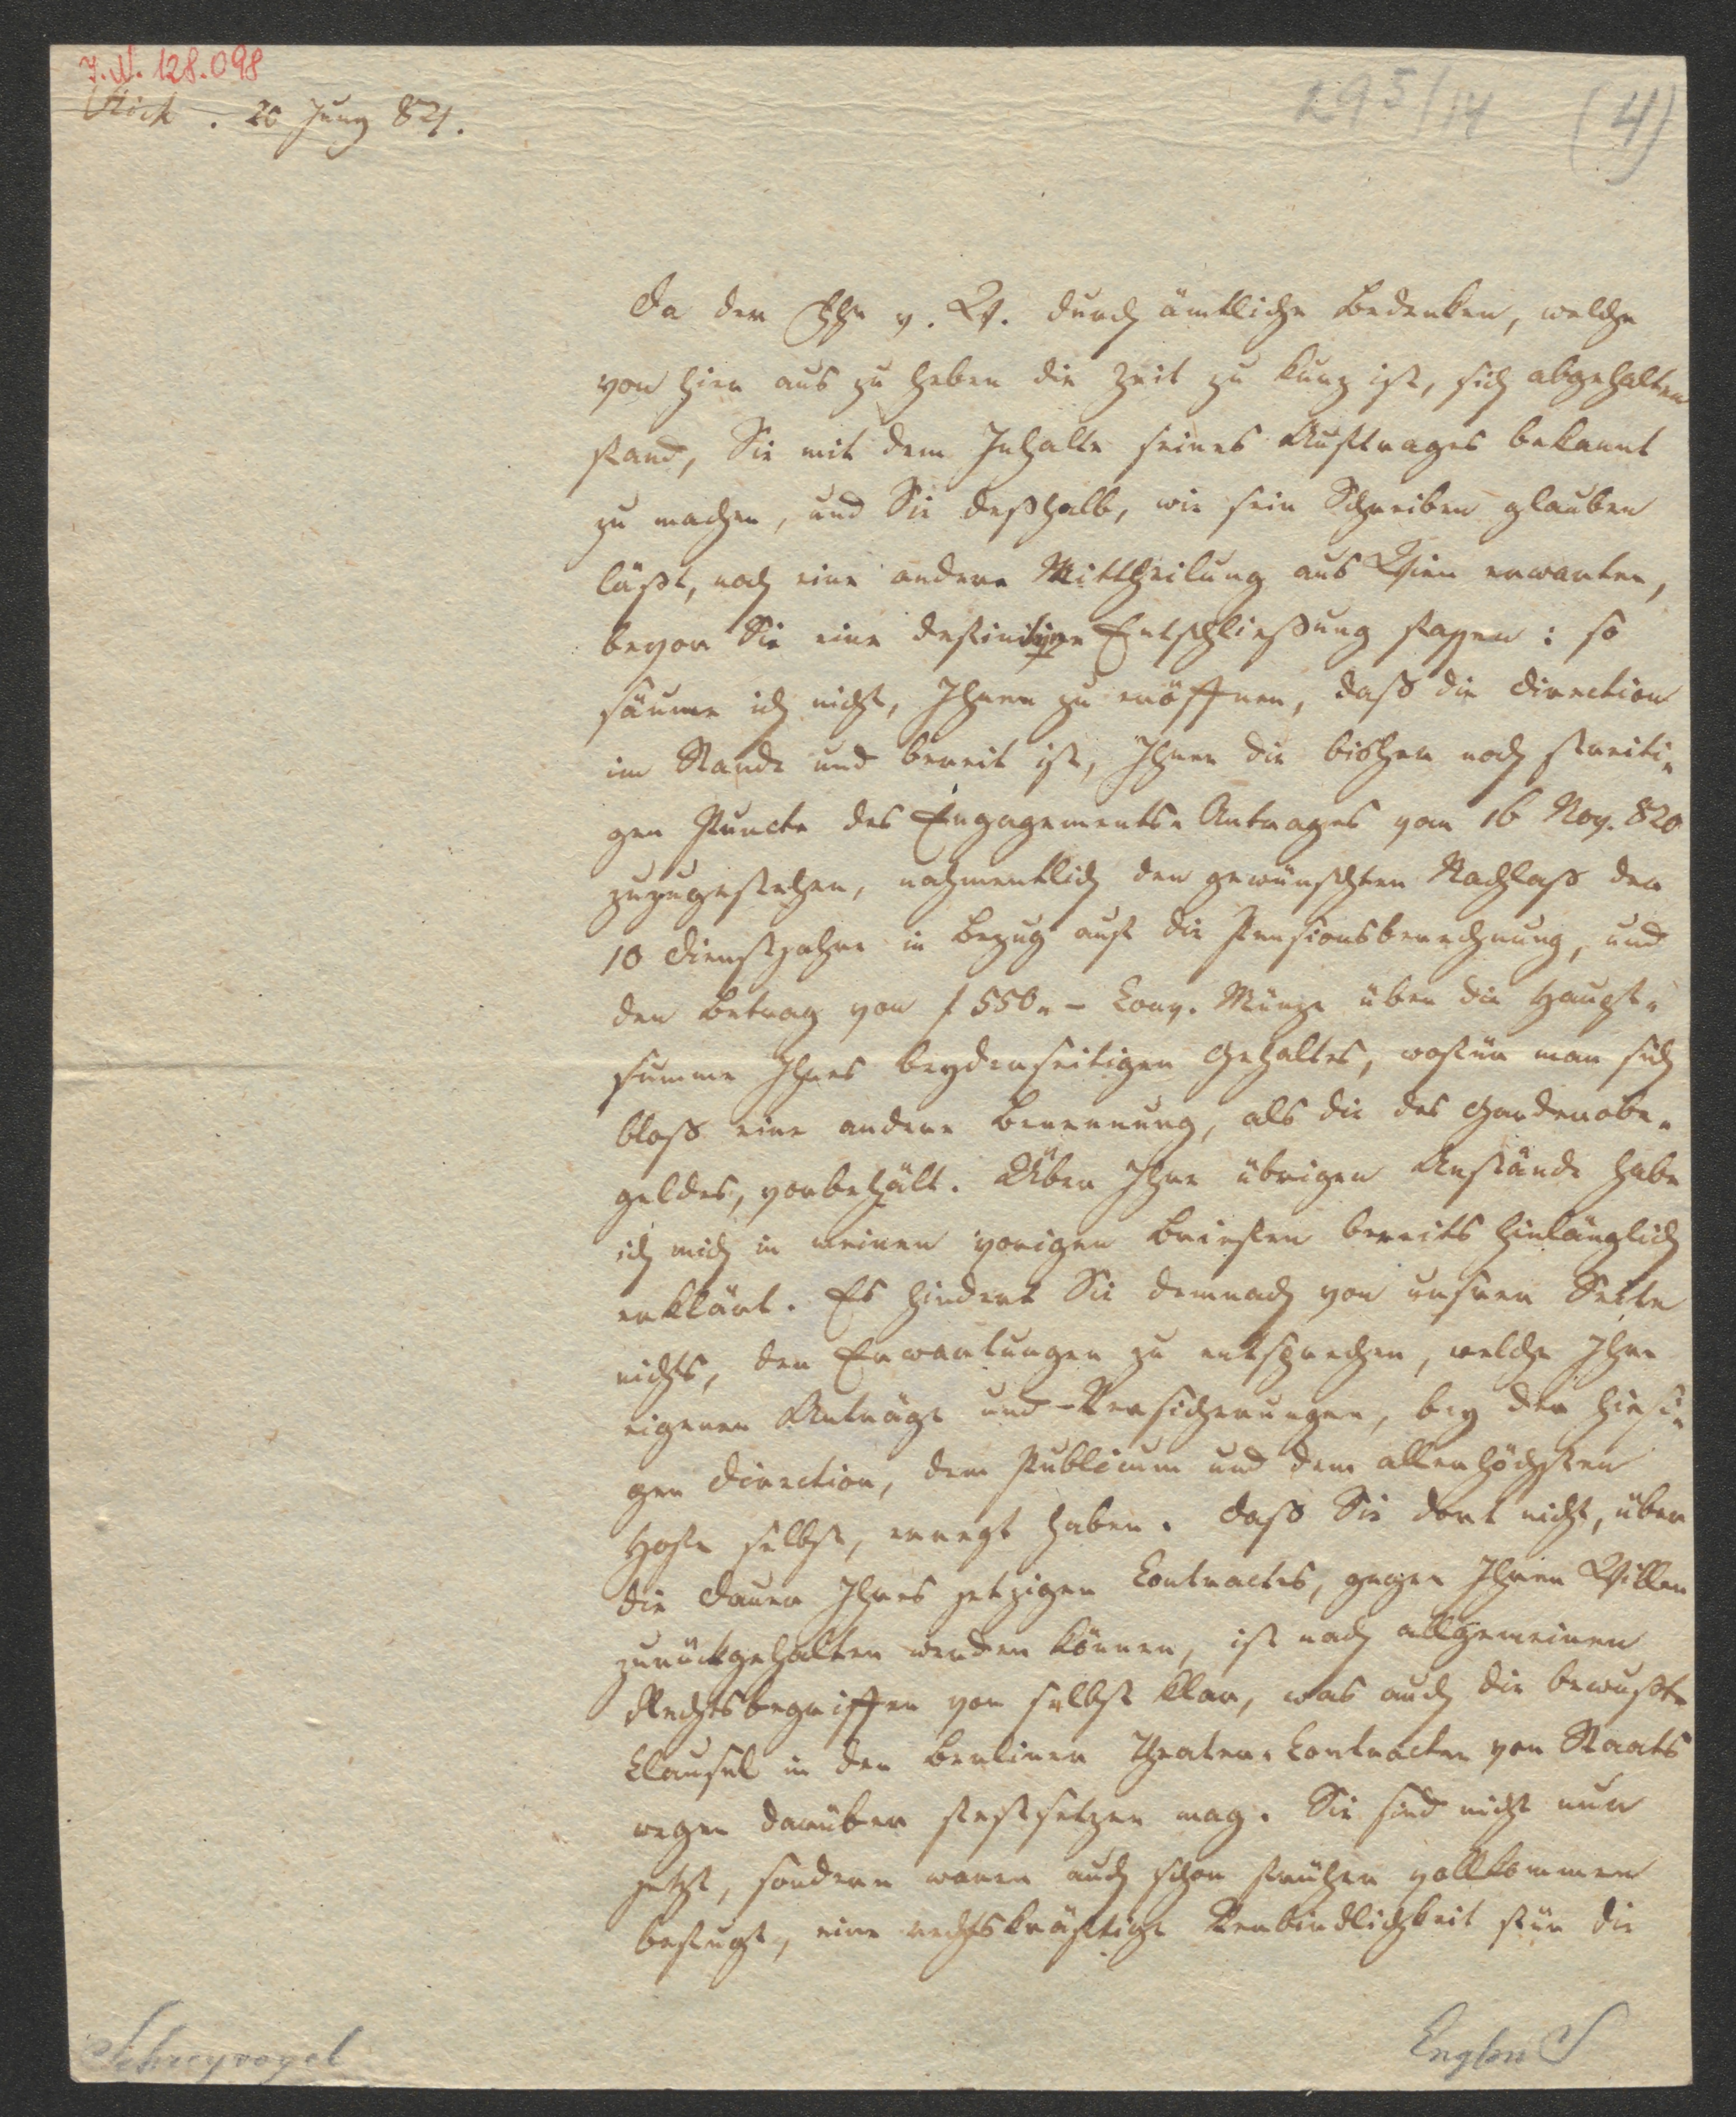 J.N. 128.098
Stich. 20 Juny 821.
295/14 (4)
Da der v. W. durch ämtliche Bedenken, welche
von hier aus zu heben die Zeit zu kurz ist, sich abgehalten
fand, Sie mit dem Inhalte seines Auftrages bekannt
zu machen, und Sie deßhalb, wie sein Schreiben glauben
läßt, noch eine andere Mittheilung aus Wien erwarten,
bevor Sie eine definitive Entschließung fassen: so
säume ich nicht, Ihnen zu eröffnen, daß die Direction
im Stande und bereit ist, Ihnen die bisher noch streiti-
gen Puncte des Engagements-Antrages vom 16 Nov. 820
zuzugestehen, nahmentlich den gewünschten Nachlaß der
10 Dienstjahre in Bezug auf die Pensionsberechnung, und
den Betrag von f 550.- Conv. Münze über die Haupt-
summe Ihres beyderseitigen Gehaltes, wofür man sich
bloß eine andere Benennung, als die des Garderobe-
geldes, vorbehält. Über Ihre übrigen Anstände habe
ich mich in meinen vorigen Briefen bereits hinlänglich
erklärt. Es hindert Sie demnach von unsrer Seite
nichts, den Erwartungen zu entsprechen, welche Ihre
eigenen Anträge und Versicherungen, bey der hiesi-
gen Direction, dem Publicum und dem allerhöchsten
Hofe selbst, erregt haben. Daß Sie dort nicht, über
die Dauer Ihres jetzigen Contractes, gegen Ihren Willen
zurückgehalten werden können, ist nach allgemeinen
Rechtsbegriffen von selbst klar, was auch die bewußte
Clausel in den Berliner Theater-Contracten von Staats
wegen darüber festsetzen mag. Sie sind nicht nur
jetzt, sondern waren auch schon früher vollkommen
befugt, eine rechtskräftige Verbindlichkeit für die
Schreyvogel